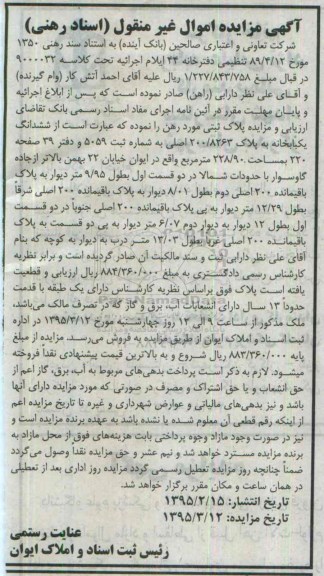 آگهی مزایده اموال غیر منقول (اسناد رهنی)
شرکت تعاونی و اعتباری صالحین (بانک آینده) به استناد سند رهنی ۱۳۵۰
مورخ ۸۹/۴/۱۲ تنظیمی دفترخانه ۴۴ ایلام اجرائیه تحت کلاسه ۹۰۰۰۰۳۲
در قبال مبلغ ۱/۲۲۷/۸۴۳/۷۵۸ ریال علیه آقای احمد آتش کار (وام گیرنده)
و آقای علی نظر دارابی (راهن) صادر نموده است که پس از ابلاغ اجرائیه
و پایان مهلت مقرر در آئین نامه اجرای مفاد اسناد رسمی بانک تقاضای
ارزیابی و مزایده پلاک ثبتی مورد رهن را نموده که عبارت است از ششدانگ
یکبابخانه به پلاک ۲۰۰/۸۲۶۳ اصلی به شماره ثبت ۵۰۵۹ و دفتر ۳۹ صفحه
۲۲۰ بمساحت ۲۲۸/۹۰ مترمربع واقع در ایوان خیابان ۲۲ بهمن بالاتر از جاده
گاوسوار با حدودات شمالا در دو قسمت اول بطول ۹/۹۵ متر دیوار به پلاک
باقیمانده ۲۰۰ اصلی دوم بطول ۸/۰۱ دیوار به پلاک باقیمانده ۲۰۰ اصلی شرقا
بطول ۱۲/۲۹ متر دیوار به پی پلاک باقیمانده ۲۰۰ اصلی جنوبا در دو قسمت
اول بطول ۱۲ دیوار به دیوار دوم ۶/۰۷ متر دیوار به پی دو قسمت به پلاک
باقیمانده ۲۰۰ اصلی غربا بطول ۱۳/۰۳ متر درب به دیوار به کوچه که بنام
آقای علی نظر دارابی ثبت و سند مالکیت آن صادر گردیده است و برابر نظریه
کارشناس رسمی دادگستری به مبلغ ۸۸۳/۳۶۰/۰۰۰ ریال ارزیابی و قطعیت
یافته است پلاک فوق براساس نظریه کارشناس دارای یک طبقه با قدمت
حدودا ۱۳ سال دارای انشعاب آب، برق و گاز که در تصرف مالک می‌باشد.
ملک مذکور از ساعت ۹ الی ۱۲ روز چهارشنبه مورخ ۱۳۹۵/۳/۱۲ در اداره
ثبت اسناد و املاک ایوان از طریق مزایده به فروش می‌رسد. مزایده از مبلغ
پایه ۸۸۳/۳۶۰/۰۰۰ ریال شروع و به بالاترین قیمت پیشنهادی نقدا فروخته
میشود. لازم به ذکر است پرداخت بدهی‌های مربوط به آب، برق، گاز اعم از
حق انشعاب و یا حق اشتراک و مصرف در صورتی که مورد مزایده دارای آنها
باشد و نیز بدهی‌های مالیاتی و عوارض شهرداری و غیره تا تاریخ مزایده اعم
از اینکه رقم قطعی آن معلوم شده یا نشده باشد به عهده برنده مزایده است و
نیز در صورت وجود مازاد وجوه پرداختی بابت هزینه‌های فوق از محل مازاد به
برنده مزایده مسترد خواهد شد و نیم عشر و حق مزایده نقدا وصول می‌گردد
ضمنا چنانچه روز مزایده تعطیل رسمی گردد مزایده روز اداری بعد از تعطیلی
در همان ساعت و مکان مقرر برگزار خواهد شد.
تاریخ انتشار: ۱۳۹۵/۲/۱۵
تاریخ مزایده: ۱۳۹۵/۳/۱۲
عنایت رستمی
رئیس ثبت اسناد و املاک ایوان